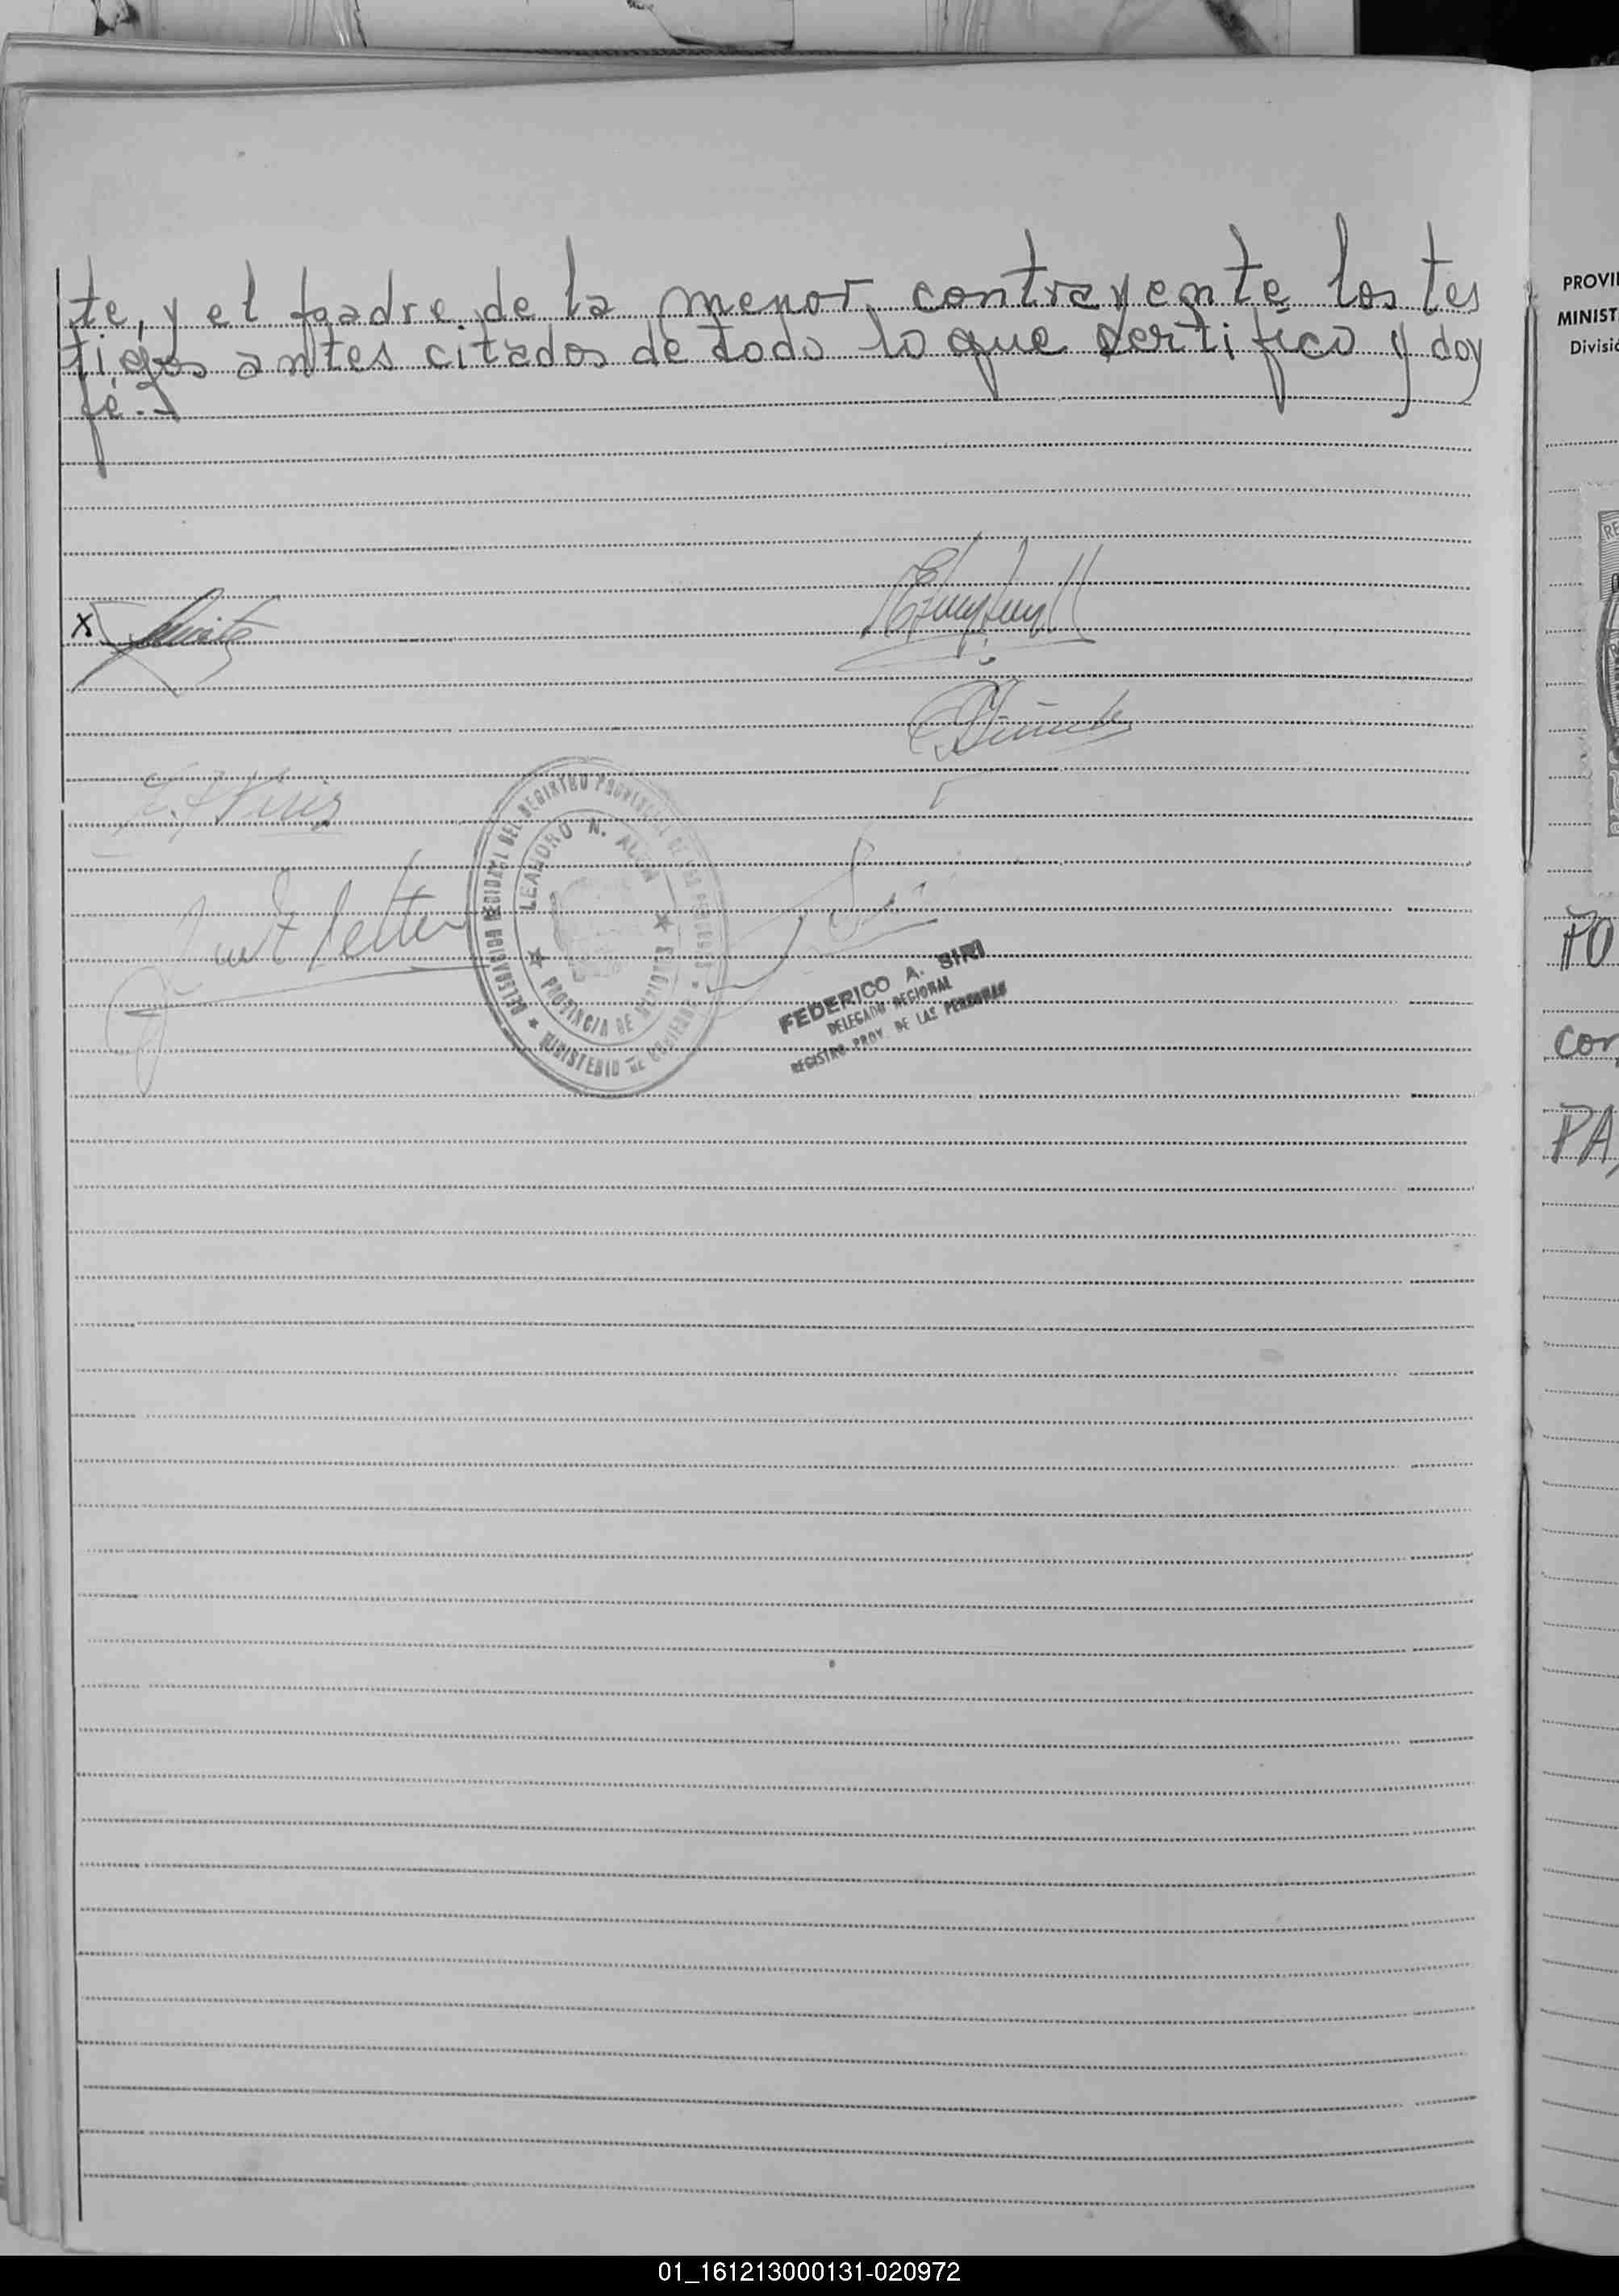 te, y el padre de la menor contrayente los tes
tigos antes citados de todo lo que sertifico y doy
fé.-
X
DELEGACION REGIONAL DEL REGISTRO PROVINCIAL DE LAS PERSONAS
LEANDRO N. ALEM
PROVINCIA DE MISIONES
MINISTERIO DE GOBIERNO
FEDERICO A. SIRI
DELEGADO REGIONAL
REGISTRO PROV. DE LAS PERSONAS
PROVI
MINIST
Divisió
RE
PO
con
PA
01_161213000131-020972